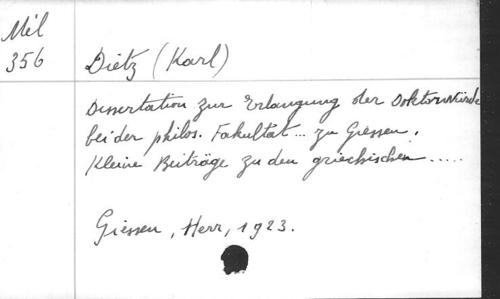 Mél
356
Dietz (Karl)
Dissertation zur Erlangung der Doktorwürde
bei der philos. Fakultät ... zu Giessen.
Kleine Beiträge zu den griechischen .....
Giessen, Herr, 1923.